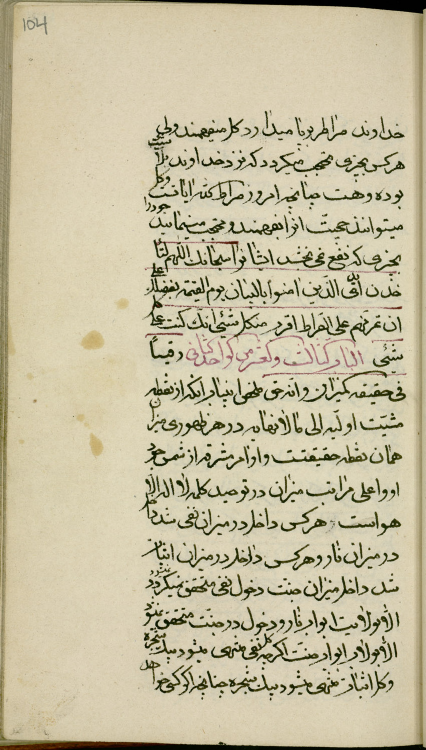 104
خداوند صراط را برپا میدارد کل میفهمند ولی
هرکس بچیزی محتجب میگردد که نزد خداوند سبب بلا
بوده وهست چنانچه امروز صراط کتاب آیات است وکل
میتوانند حجیت آنرا بفهمند ومحتجب مینمایند خود را
بچیزی که نفع نمی بخشد ایشانرا سبحانک اللهم
الذین امنوا بالبیان یوم القیمة بفضلک
ان تمرنهم علی الصراط اقرب من کل شئ انک کنت علی کل
شئ الباب الثالث والعشر من الواحد الثانی رقیبا
فی حقیقه المیزان وانه حق ملخص این باب آنکه از نقطه
مشیت اولیه الی ما لا نهایه در هر ظهوری میزان
همان نقطه حقیقتست واوامر مشرقه از شمس جود
او واعلی مراتب میزان در توحید کلمه لا اله الا
هو است هرکس داخل در میزان نفی شد داخل
در میزان نار وهرکس داخل در میزان اثبات
شد داخل میزان جنت دخول نفی متحقق نمیگردد
الا بولایت ابواب نار ودخول در جنت متحقق نمیشود
الا بولاء ابواب جنت اگرچه کل نفی منتهی میشود بیک شجره
وکل اثبات منتهی میشود بیک شجره چنانچه اگر کسی خواهد